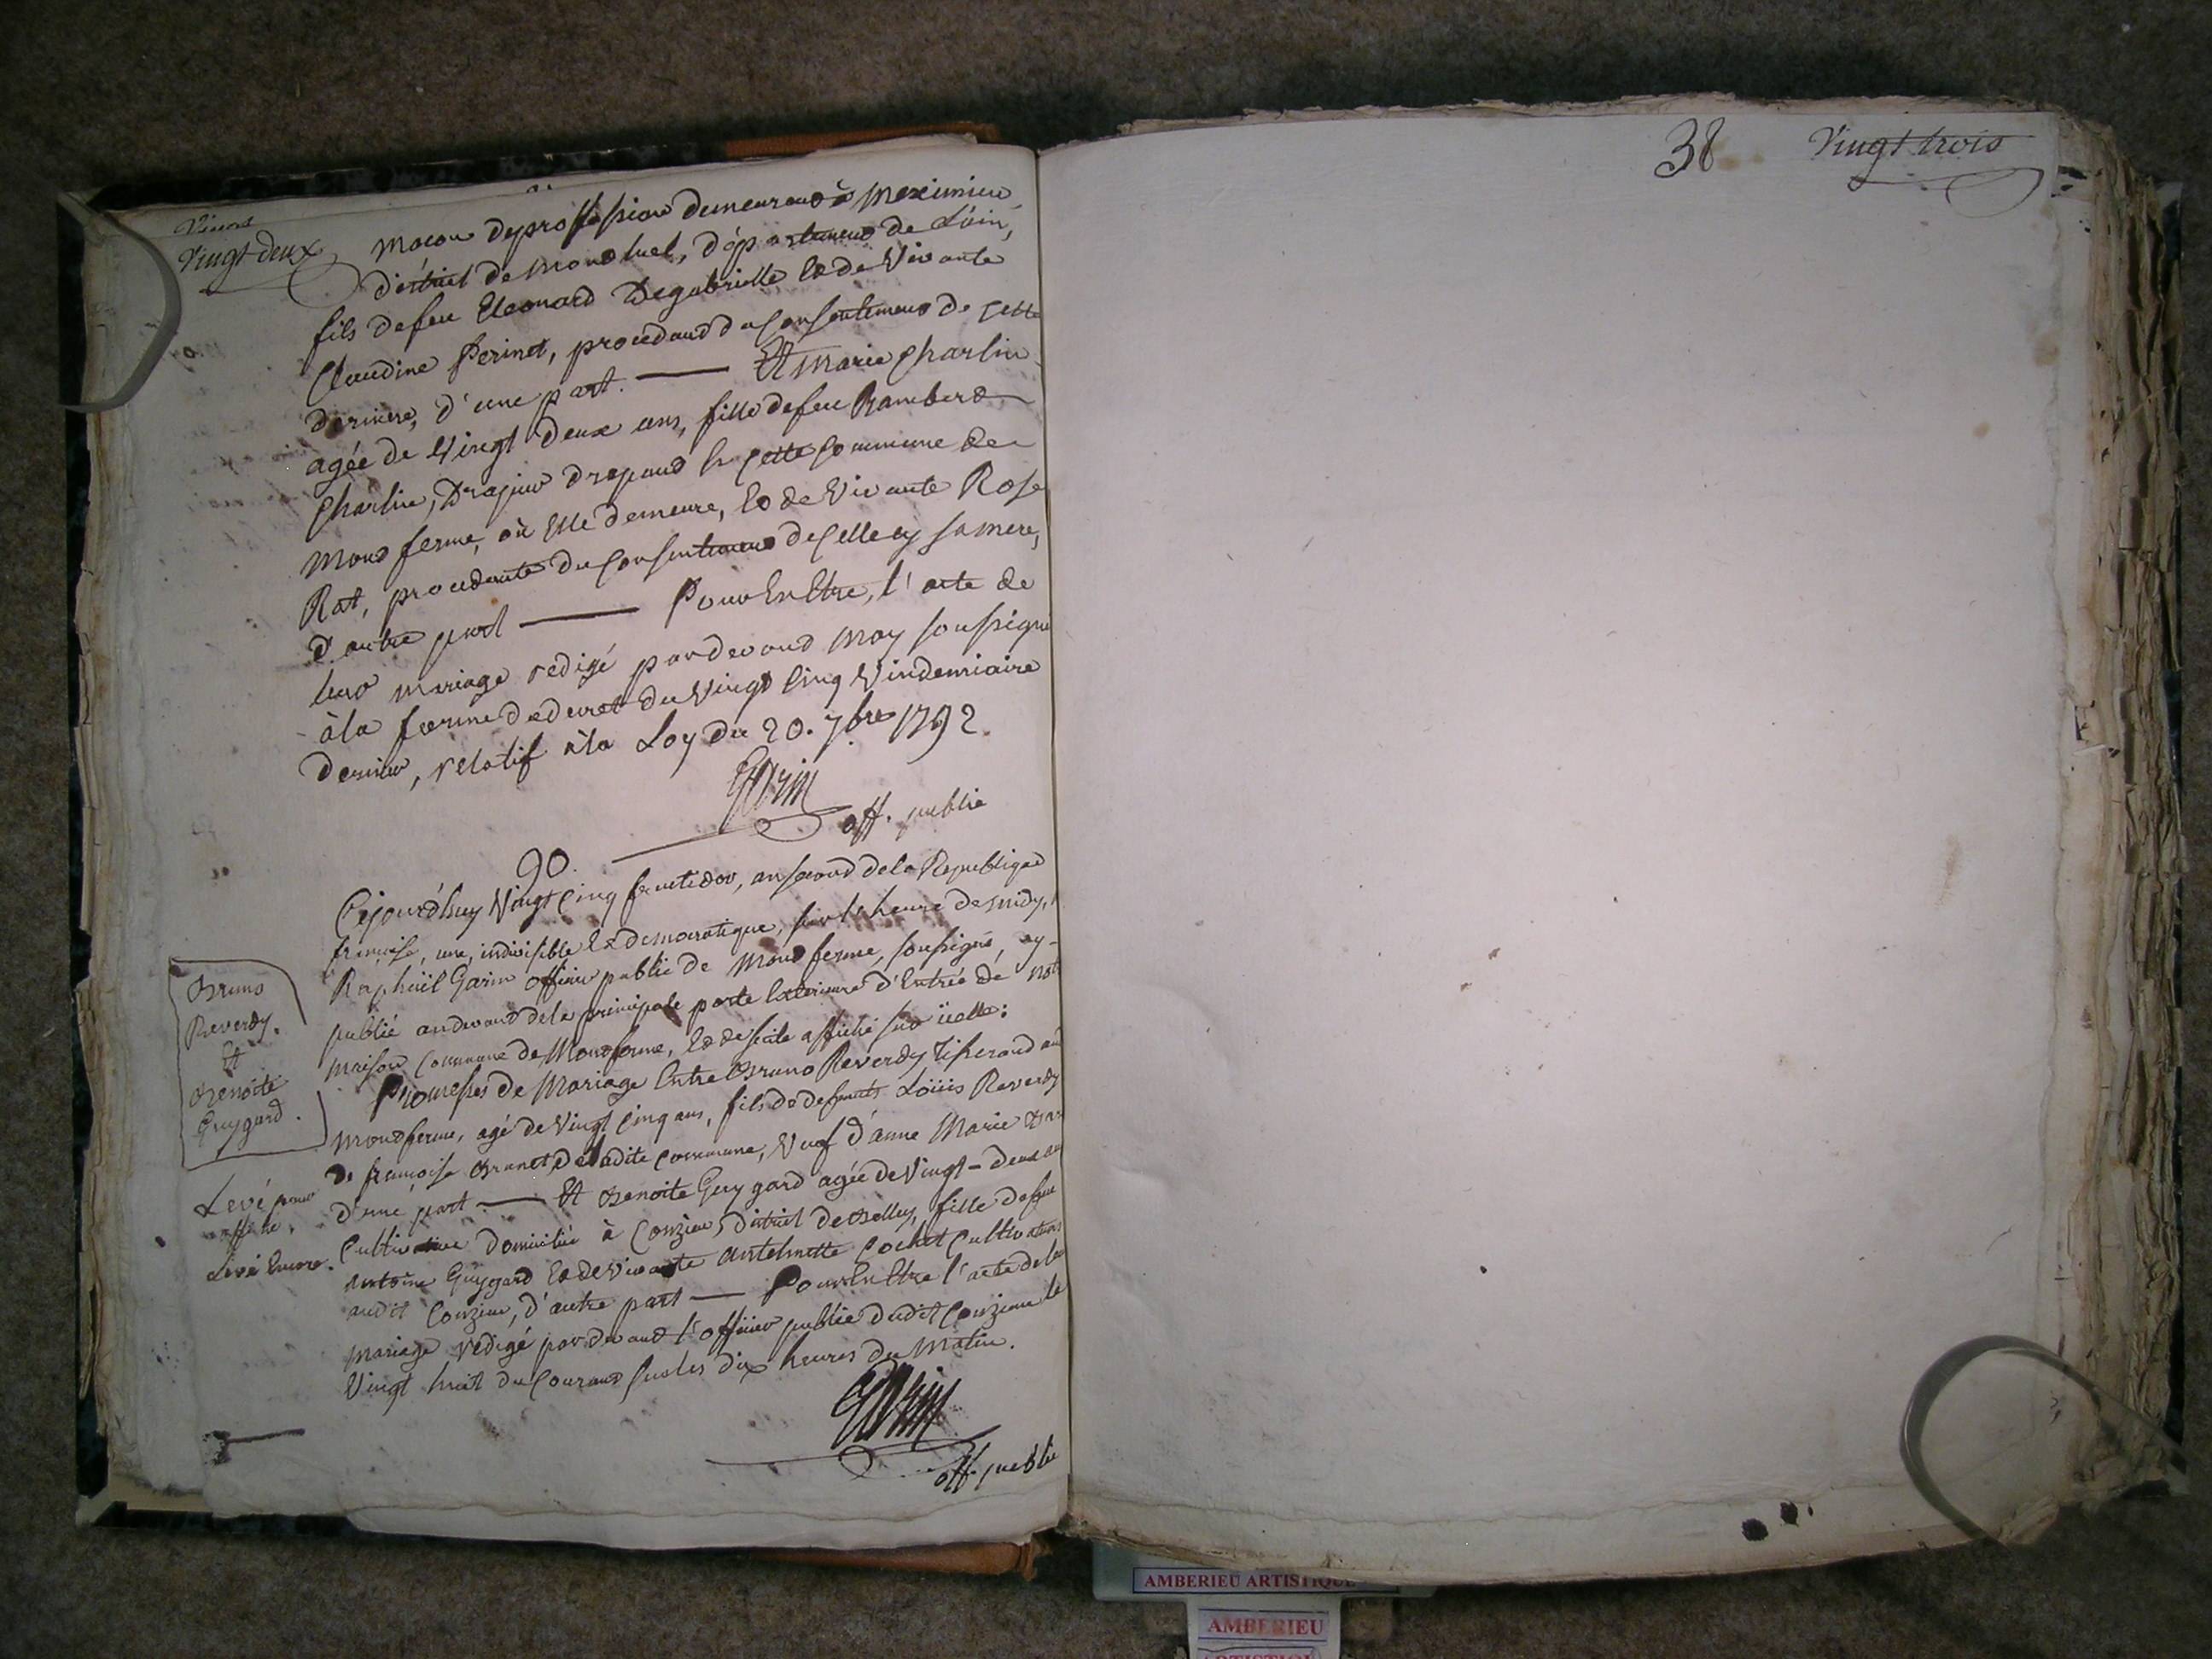 Vingt deux
macon de proffession demeurant à Meximieu
district de Montluel, département de L'ain,
fils de feu Eleonard Degabrielle et de vivante
Claudine Perinet, procedant du consentement de cette
derniere, d'une part. Et Marie Charlin
agée de vingt deux ans, fille de feu Rambert
Charlin, Drapier drapant en cette commune de
Mont ferme, où Elle demeure, et de vivante Rose
Rat, procedante du consentement de celle cy sa mere,
d'autre part Pour En Etre, l'acte de
leur mariage redigé pardevant moy soussigné
à la forme de decret du vingt cinq vindemiaire
dernier, relatif à la Loy du 20. 7bre 1792.
Garin
off. public
90.
Cejourd'huy vingt cinq fructidor, an second de la Republique
françoise, une, indivisible et democratique, sur l'heure de midy,
Raphaël Garin officier public de Mont ferme, soussigné, ay
publié audevant de la principale porte Exterieure d'Entrée de not
maison commune de Montferme, et de suite affiché sur icelle:
Promesses de Mariage Entre Bruno Reverdy Tisserand au
Montferme, agé de vingt cinq ans, fils de defunts Loüis Reverdy
de françoise Brunet de ladite commune, veuf d'anne Marie
d'une part Et Benoite Guygard agée de vingt-deux an
cultivatrice domiciliée à Conzieu, district de Belley, fille de feu
Antoine Guygard et de vivante Antelmette Cochet cultivateurs
audit Conzieu, d'autre part Pour En Etre l'acte de leur
mariage redigé pardevant l'officier public dudit Conzieu le
vingt huit du courant sur les dix heures du matin.
Garin
off. public
Bruno
Reverdy.
Et
Benoite
Guygard.
Levé pour
Levé Encore.
38
Vingt trois
AMBERIEU ARTISTIQUE
AMBERIEU
ARTISTIQUE